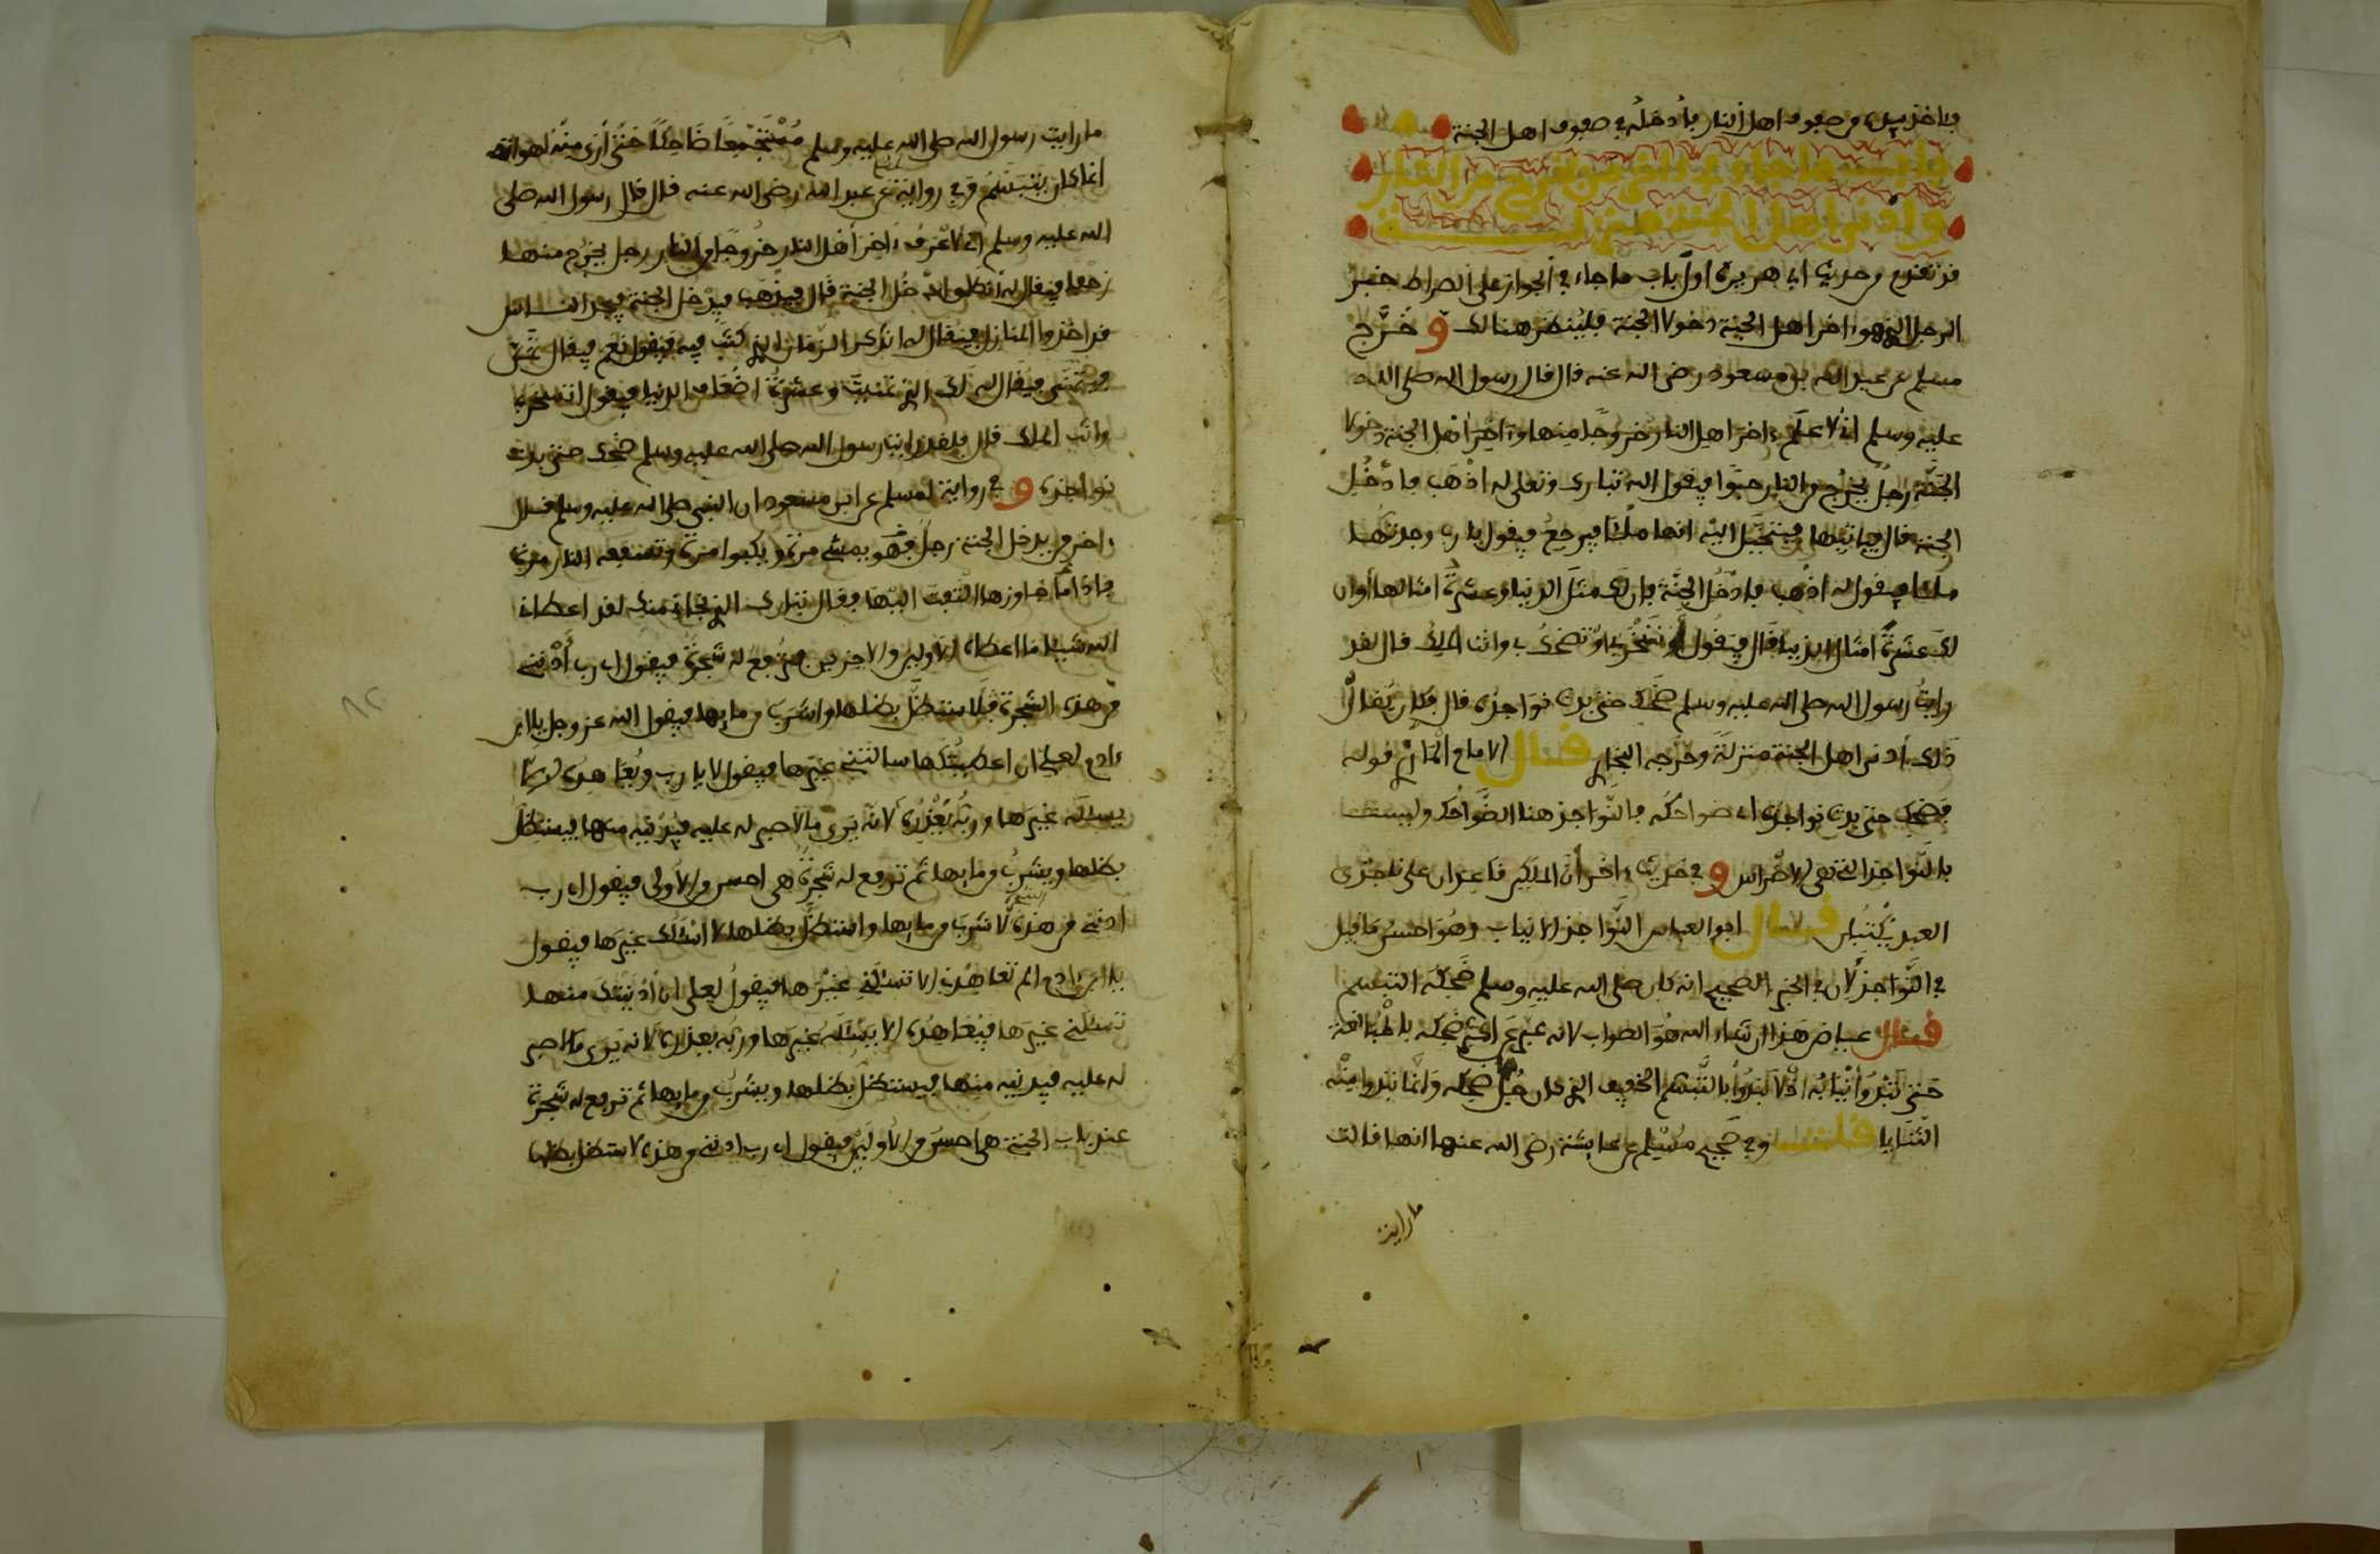 فاخذ بيده من صفوف اهل النار فادخله في صفوف اهل الجنة
باب ما جاء في اخر من يخرج من النار
وادنى اهل الجنة منزلة
قد تقدم من حديث ابي هريرة اول باب ما جاء في الجواز على الصراط خبر
الرجل الذي هو ءاخر اهل الجنة دخولا الجنة فلينظر هنالك و خَرَّج
مسلم عن عبد الله بن مسعود رضى الله عنه قال قال رسول الله صلى الله
عليه وسلم اني لاعلم ءاخر اهل النار خروجًا منها وءاخر اهل الجنة دخولا
الجنّة رجلٌ يخرج من النار حبوا فيقول الله تبارك وتعلى له اذْهَب فادْخُل
الجنة قال فياتيها فيخيّل اليه انها ملئا فيرجع فيقول يا رب وجدتها
ملئا فيقول له اذهب فادخُل الجنّة فان لك مثل الدنيا وعشرةُ امثالها أو ان
لك عَشَرةُ امثال الدنيا قال فيقُول أتسْخَر بي او تضحك بي وانت الملِك قال لقد
رايتُ رسول الله صلى الله عليه وسلم ضحك حتى بدت نواجذه قال فكان يُقال
ذلك أدنى اهل الجنة منزلةً وخرّجه البخاري فصل الامام المازري قوله
فضحك حتى بدت نواجذه اي ضواحكه فالنّواجذ هنا الضّواحك وليست
بالنّواجذ التي هي الاضراس و في حديث ءاخر أن الملكين قاعدان على ناجذي
العبد يكتبان قال ابو العباس النّواجذ الانياب وهُو احسن ما قيل
في النّواجذ لان في الخبر الصحيح انه كان صلى الله عليه وسلم ضحكه التبسم
قال عياض هذا ان شاء الله هُو الصواب لانه عبر عن اكثر ضحكه بالمبالغة
حَتى تَبْدُوَ أنْيابُه اذْ لا تَبْدُوا بالتّبسم الخفيف الذي كان جُلّ ضحكه وإنّما تبدوا منْه
الثنَايا قلت وفي صحيح مسْلم عن عايشة رضى الله عنها انها قالت
ما رايت
ما رايت رسول الله صلى الله عليه وسلم مُسْتَجْمِعًا ضَاحِكًا حَتّى أرَى مِنْه لهواته
انما كان يتبسّمُ وفي رواية عن عبد الله رضى الله عنه قال قال رسول الله صلى
الله عليه وسلم انى لاعْرف ءاخر أهْل النار خُروجًا من النار رجل يخرج منها
زحْفا فيقال له انطلق ادْخُل الجنة قال فيذْهب فيدْخل الجنة فيجد الناس
قد اخذوا المنازل فيقال له اتذكر الزمان الذي كنتَ فيه فيقول نعم فيقال تَمَنّ
فيتمنّى فيقال له لك الذي تمنيتَ وعشرةُ اضْعاف الدنيا فيقول اتسخر بي
وانت الملك قال فلقد رايت رسول الله صلى الله عليه وسلم ضحك حتى بدت
نواجذه و في رواية لمسلم عن ابن مسعود ان النبي صلى الله عليه وسلم قال
ءاخر من يدخل الجنة رجلٌ فهُو يمشي مرة ويكبوا مرة وتسفعه النار مرة
فاذا ما جاوزها التفت اليها فقال تبارك الذي نجاني منك لقد اعطاني
الله شيئا ما اعطاه الاولين والاخرين فترفع له شجرة فيقول اي رب أدْنني
من هذه الشجرة فلاستظلّ بظلها واشربَ من مايها فيقول الله عز وجل يا ابن
ءادم لعلي ان اعطيتُكها سالتني غيْرها فيقول لا يا رب ويُعاهده ان لا
يسئله غيرها وربُّه يعْذرُه لانه يَرى ما لا صبر له عليه فيدنيه منها فيستظل
بظلها ويشرب من مايها ثم ترفع له شجرةٌ هي احسن من الأولى فيقول اي رب
ادنني من هذه لاشرَب من مايها واستظلّ بظلها لا اسْئلك غيرَها فيقول
يا ابن ءادم الم تعاهدني الا تسئلني غيْرها فيقول لعلي ان أدْنيتُك منها
تسئلني غيرها فيُعاهدُه الا يسْئله غيرَها وربُّه يعذره لانه يَرى ما لا صبر
له عليه فيدنيه منها فيستظلّ بظلها ويشرب من مايها ثم ترفع له شجرة
عند باب الجنة هي احسن من الأوليين فيقول اي رب ادنني من هذه لاستظل بظلها